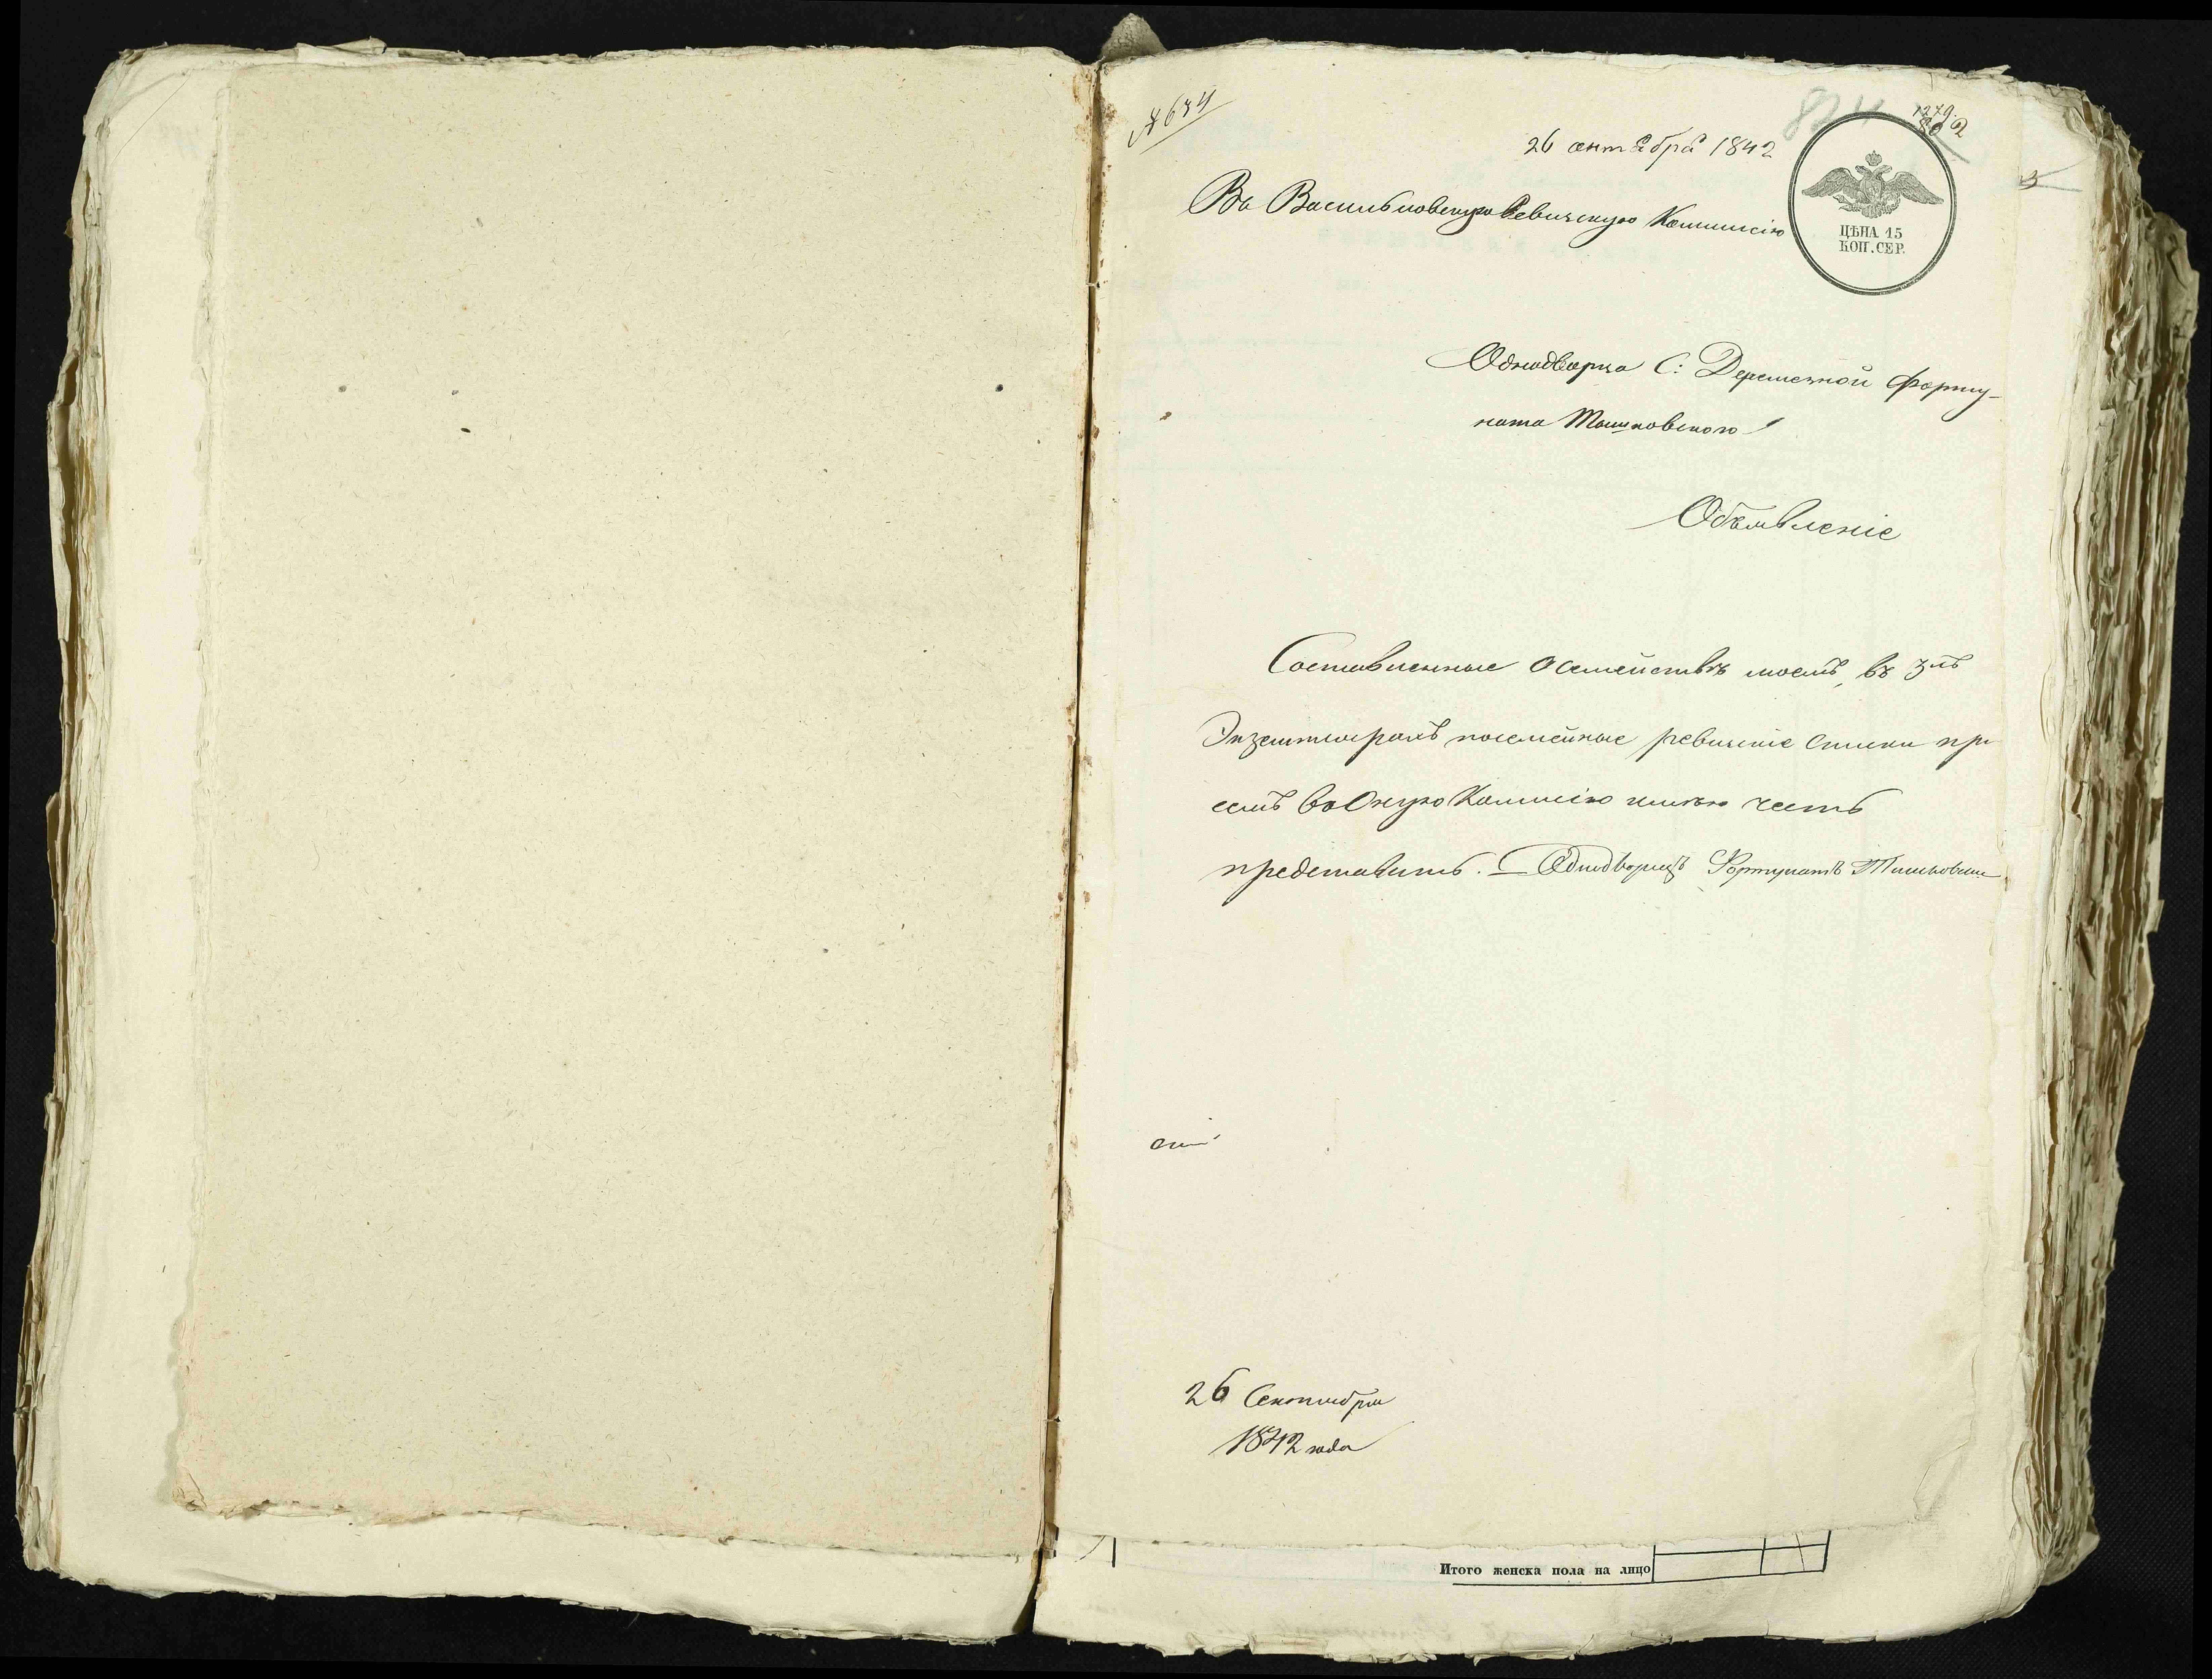 № 634
824
1279.
26 сентября 1842
Въ Васильковскую Ревизскую Коммисію
ЦѢНА 15
КОП. СЕР.
Однодворца С: Деремезной Форту-
ната Тышковского
Объявленіе
Составленные о семействѣ моемъ, въ 3хъ
Экземплярахъ посемейные ревизскіе списки при
семъ въ Оную Коммисію имѣю честь
представить. — Однодворецъ Фортунатъ Тишковски
26 Сентября
1842 года
Итого женска пола на лицо